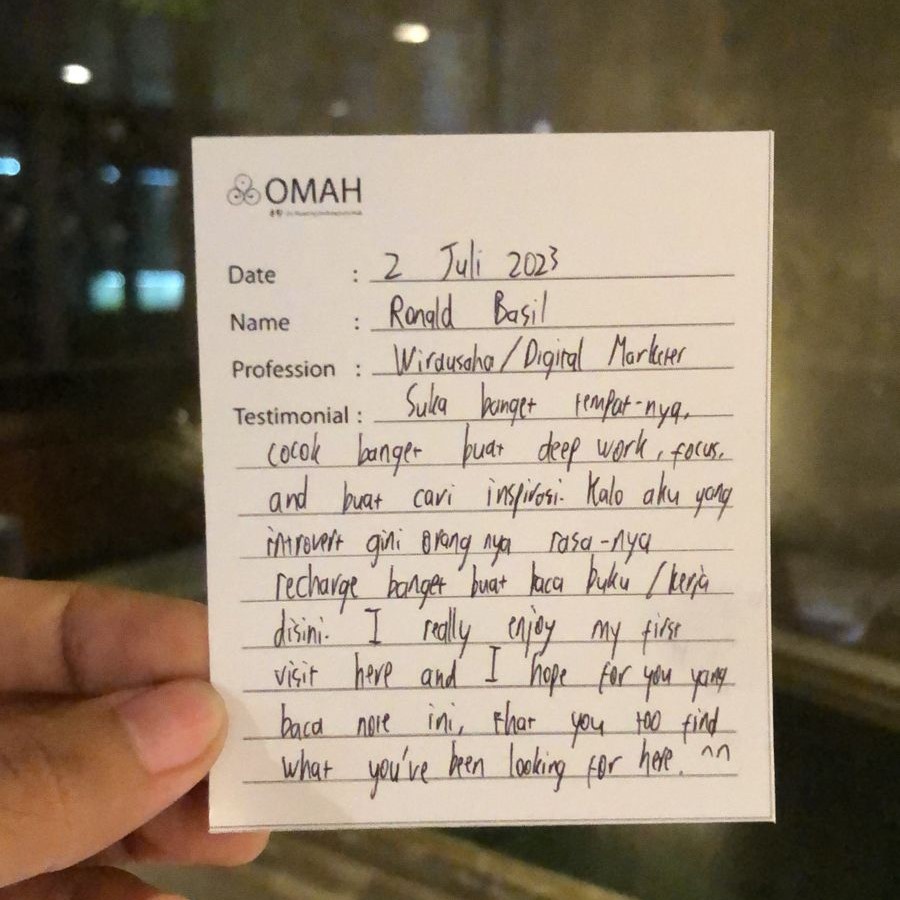 OMAH
Date : 2 Juli 2023
Name : Ronald Basil
Profession : Wirausaha / Digital Marketer
Testimonial : Suka banget tempat-nya,
cocok banget buat deep work, focus,
and buat cari inspirasi. Kalo aku yang
introvert gini orang nya rasa-nya
recharge banget buat baca buku / kerja
disini. I really enjoy my first
visit here and I hope for you yang
baca note ini, that you too find
what you've been looking for here. ^^